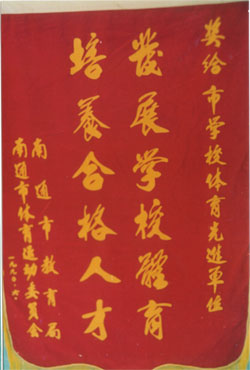 奖给市学校体育先進單位
发展学校體育
培養合格人才
南通市教育局
南通市体育运动委员会
一九九〇·六·